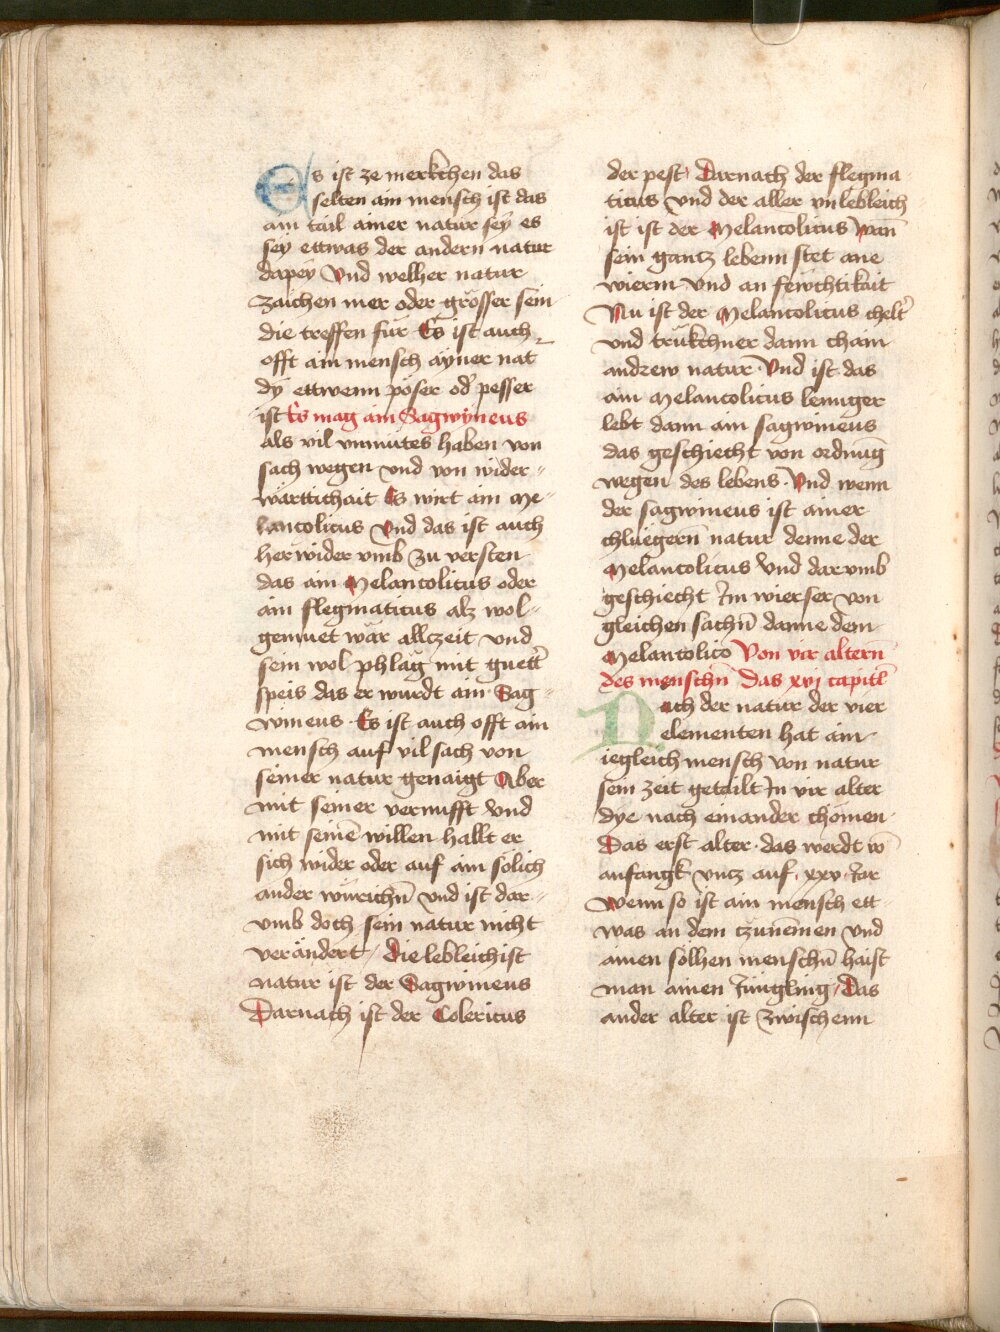 Es ist ze merkchen das
selten ain mensch ist das
ain tail ainer natur sey es
sey ettwas der andern natur
dapey Vnd welher natur
zaichen mer oder grösser sein
die treffen für Es ist auch
offt ain mensch ayner nat
dy ettwenn pöser od pesser
ist Es mag ain Sagwyneus
als vil vnmutes haben von
sach wegen vnd von wider
warttichait Es wirt ain Me
lancolicus Vnd das ist auch
her wider vmb zu versten
das ain Melancolicus oder
ain flegmaticus alz wol
gemuet wär allczeit vnd
sein wol phlag mit guett
speis das er wurdt ain Sag
wineus Es ist auch offt ain
mensch auf vil sach von
seiner natur genaigt Aber
mit seiner vernufft Vnd
mit seinē willen hallt er
sich wider oder auf ain solich
ander würichn vnd ist dar
vmb doch sein natur nicht
verändert / Die lebleichist
natur ist der Sagwineus
Darnach ist der Colericus
der pest Darnach der flegma
ticus vnd der aller vnlebleich
ist ist der Melancolicus wan̄
sein gantz lebenn stet ane
wierm vnd an fewchtikait
Nu ist der Melancolicus chelt
vnd trukchner dann chain
andrew natur Vnd ist das
ain Melancolicus lennger
lebt dann ain sagwineus
das geschiecht von ordnūg
wegen des lebens Vnd wenn
der sagwineus ist ainer
chluegern natur denne der
Melancolicus Vnd dar vmb
geschiecht Im wierser von
gleichen sachn̄ danne dem
Melancolico Von vir altern
des menschn̄ Das xvj capitl
Nach der natur der vier
elementen hat ain
iegleich mensch von natur
sein zeit getailt In vir alter
dye nach einander chömen
Das erst alter das werdt vō
anfangk vncz auf xxv Jar
Wenn so ist ain mensch ett
was an dem czunemen vnd
ainen solhen menschn̄ haist
man ainen Jüngling / Das
ander alter ist zwischenn